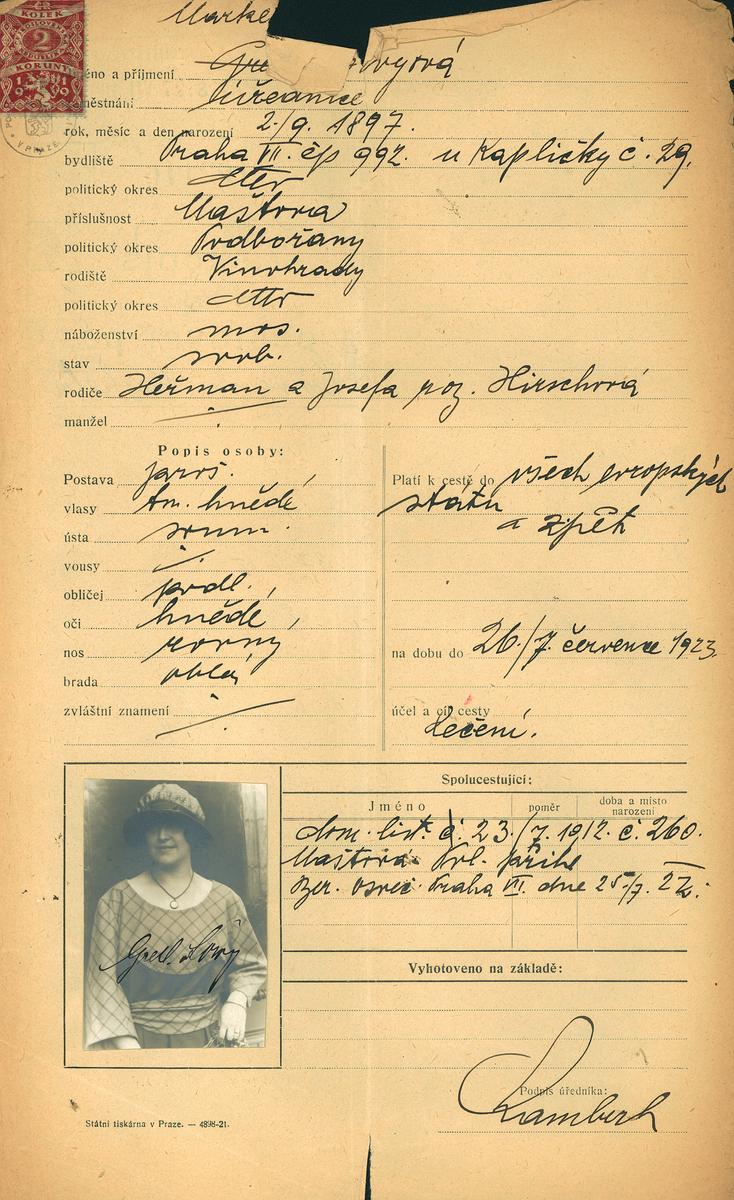 KOLEK
2
KORUNY
1919
Marke
jméno a příjmení
zaměstnání úřednice
rok, měsíc a den narození 2./9. 1897.
bydliště Praha VII. čp 992. u Kapličky č. 29.
politický okres detto
příslušnost Maštova
politický okres Podbořany
rodiště Vinohrady
politický okres detto
náboženství mos.
stav svob.
rodiče Heřman a Josefa roz. Hirschová
manžel ⁒
Popis osoby:
Postava
vlasy tm. hnědé
ústa soum.
vousy ⁒
obličej podl.
oči hnědé
nos rovný
brada oblá
zvláštní znamení ⁒
Platí k cestě do všech evropských
statu
a zpět
na dobu do 26./7. července 1923.
účel a cíl cesty
Lečení.
Spolucestující:
Jméno poměr doba a místo narození
dom. list. č. 23./7. 1912. č. 260.
Maštová. Pol.
Praha VII. dne 25./7. 22.
Gretl Lowy
Vyhotoveno na základě:
Podpis úředníka:
Státní tiskárna v Praze. — 4898-21.